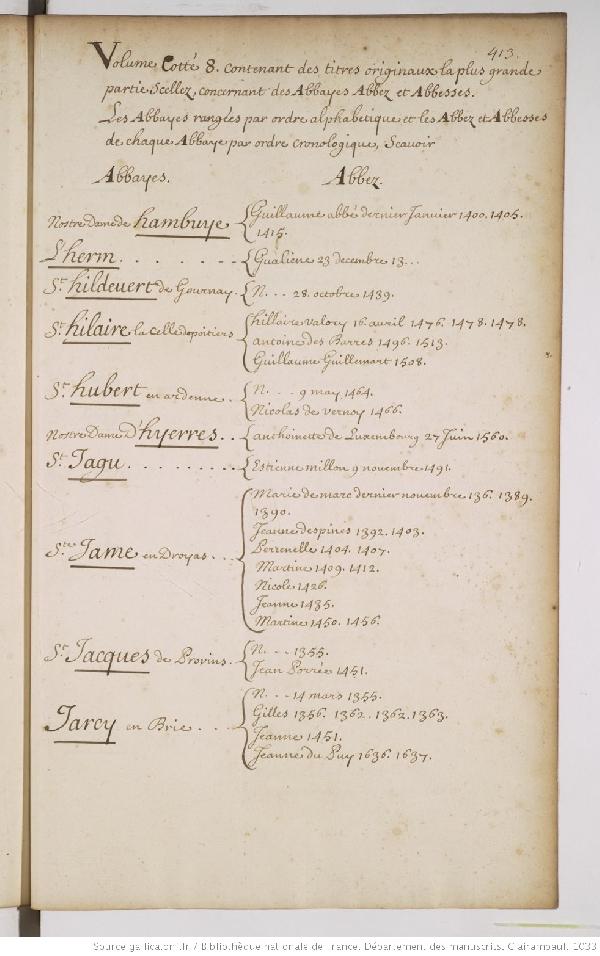 413.
Volume Cotté 8. contenant des titres originaux la plus grande
partie Scellez, concernant des Abbayes Abbez et Abbesses.
Les Abbayes rangées par ordre alphabetique et les Abbez et Abbesses
de chaque Abbaye par ordre cronologique, Scavoir
Abbayes. Abbez.
Nostre Dame de hambuye { Guillaume abbé dernier Janvier 1400. 1405.
1415.
L'herm. . . . . . . . { Gualiene 23 decembre 13...
St. hildevert de Gournay. { N. . . 28. octobre 1439.
St. hilaire la Celle de poitiers { hillaire Valory 16. avril 1476. 1478. 1478.
antoine des Barres 1496. 1513.
Guillaume Guillemart 1508.
St. hubert en ardenne. { N. . . . 9 may. 1464.
Nicolas de vernoy 1466.
Nostre Dame d'hyerres . . { anthoinette de Luxembourg 27 Juin 1560.
St. Jagu. . . . . . . . . { Estienne millon 9 novembre 1491.
Ste. Jame en Droyas. . . { Marie de marc dernier novembre 136. 1389.
1390.
Jeanne despines 1392. 1403.
Perrenelle 1404. 1407.
Martine 1409. 1412.
Nicole 1426.
Jeanne 1435.
Martine 1450. 1456.
St. Jacques de Provins. { N. . . 1355.
Jean Porrée 1451.
Jarcy en Brie . . . { N. . . 14 mars 1355.
Gilles 1356. 1362. 1362. 1363.
Jeanne 1451.
Jeanne du Puy 1636. 1637.
Source gallica.bnf.fr / Bibliothèque nationale de France. Département des manuscrits. Clairambault. 1033